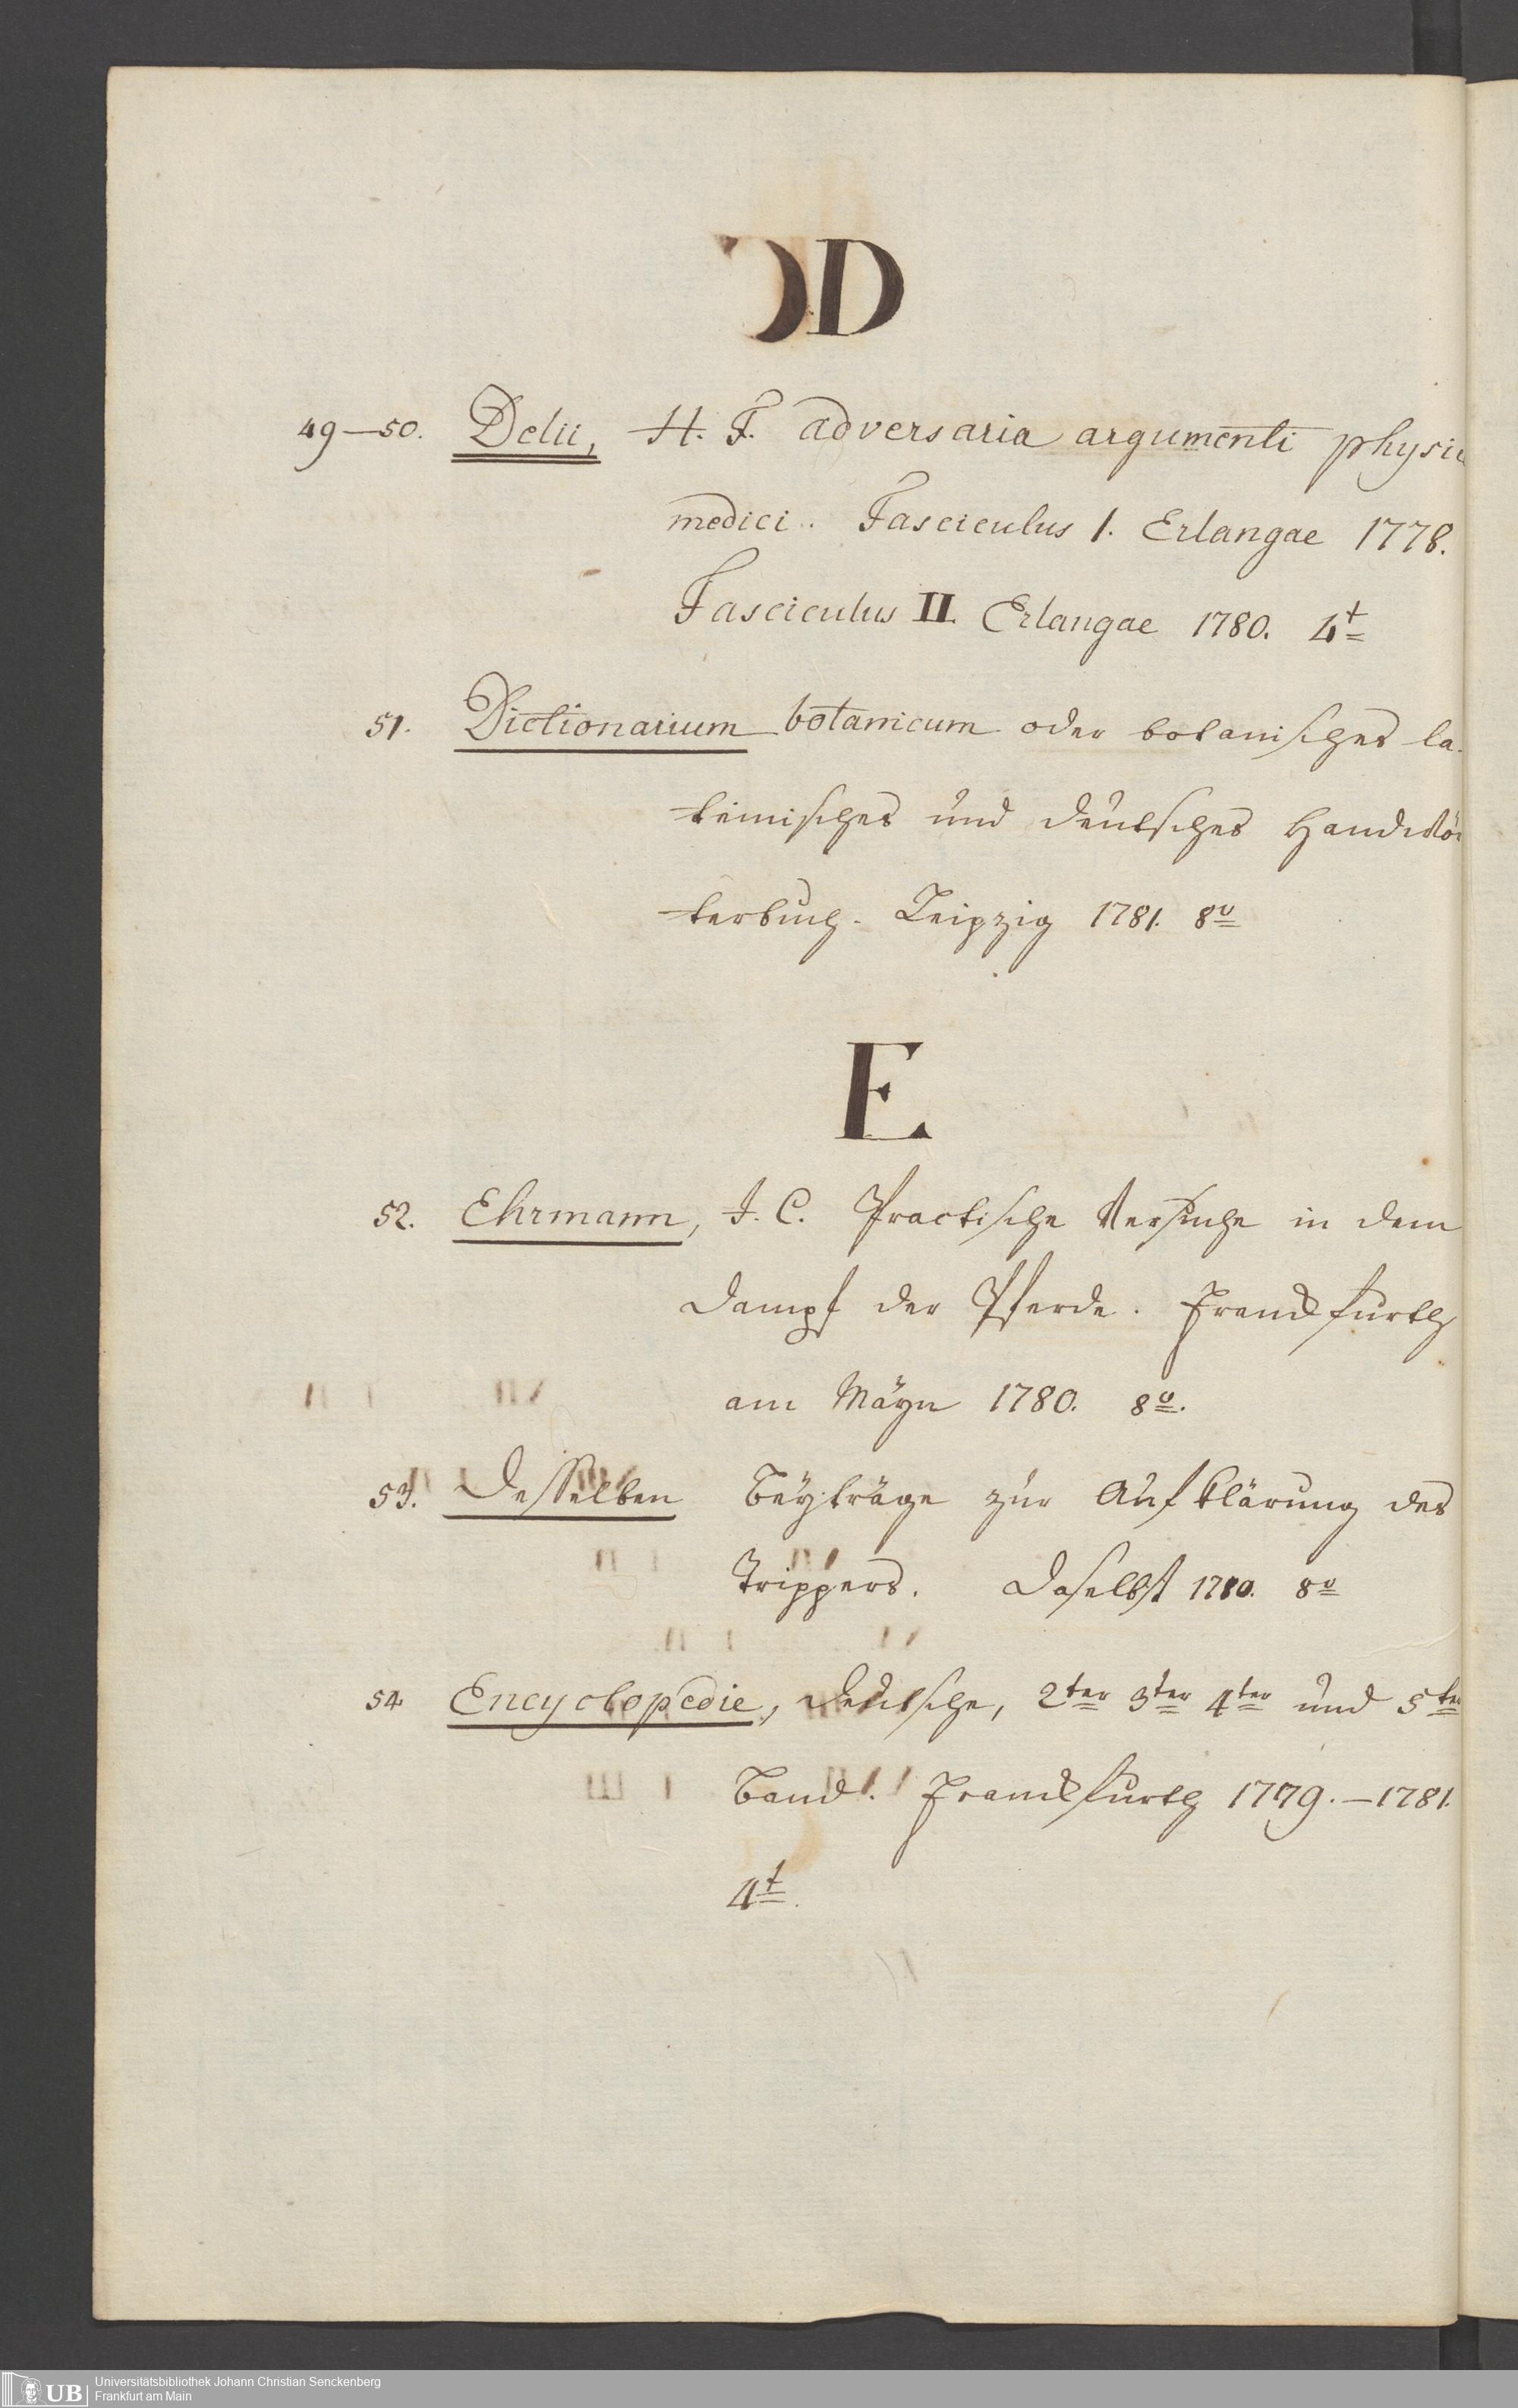 D
49-50. Delii, H. F. adversaria argumenti physi
medici. Fasciculus 1. Erlangae 1778.
Fasciculus II. Erlangae 1780. 4t
51. Dictionarium botanicum oder botanisches la-
teinisches und deutsches Handwör
terbuch. Leipzig 1781. 8o
E
52. Ehrmann, J. C. Practische Versuche in dem
Dampf der Pferde. Franckfurth
am Mäyn 1780. 8o.
53. Desselben Beyträge zur Aufklärung des
Trippers. Daselbst 1780. 8o
54 Encyclopedie, deutsche, 2ter 3ter 4ter und 5ter
Band. Franckfurth 1779.-1781.
4t.
UB Universitätsbibliothek Johann Christian Senckenberg
Frankfurt am Main